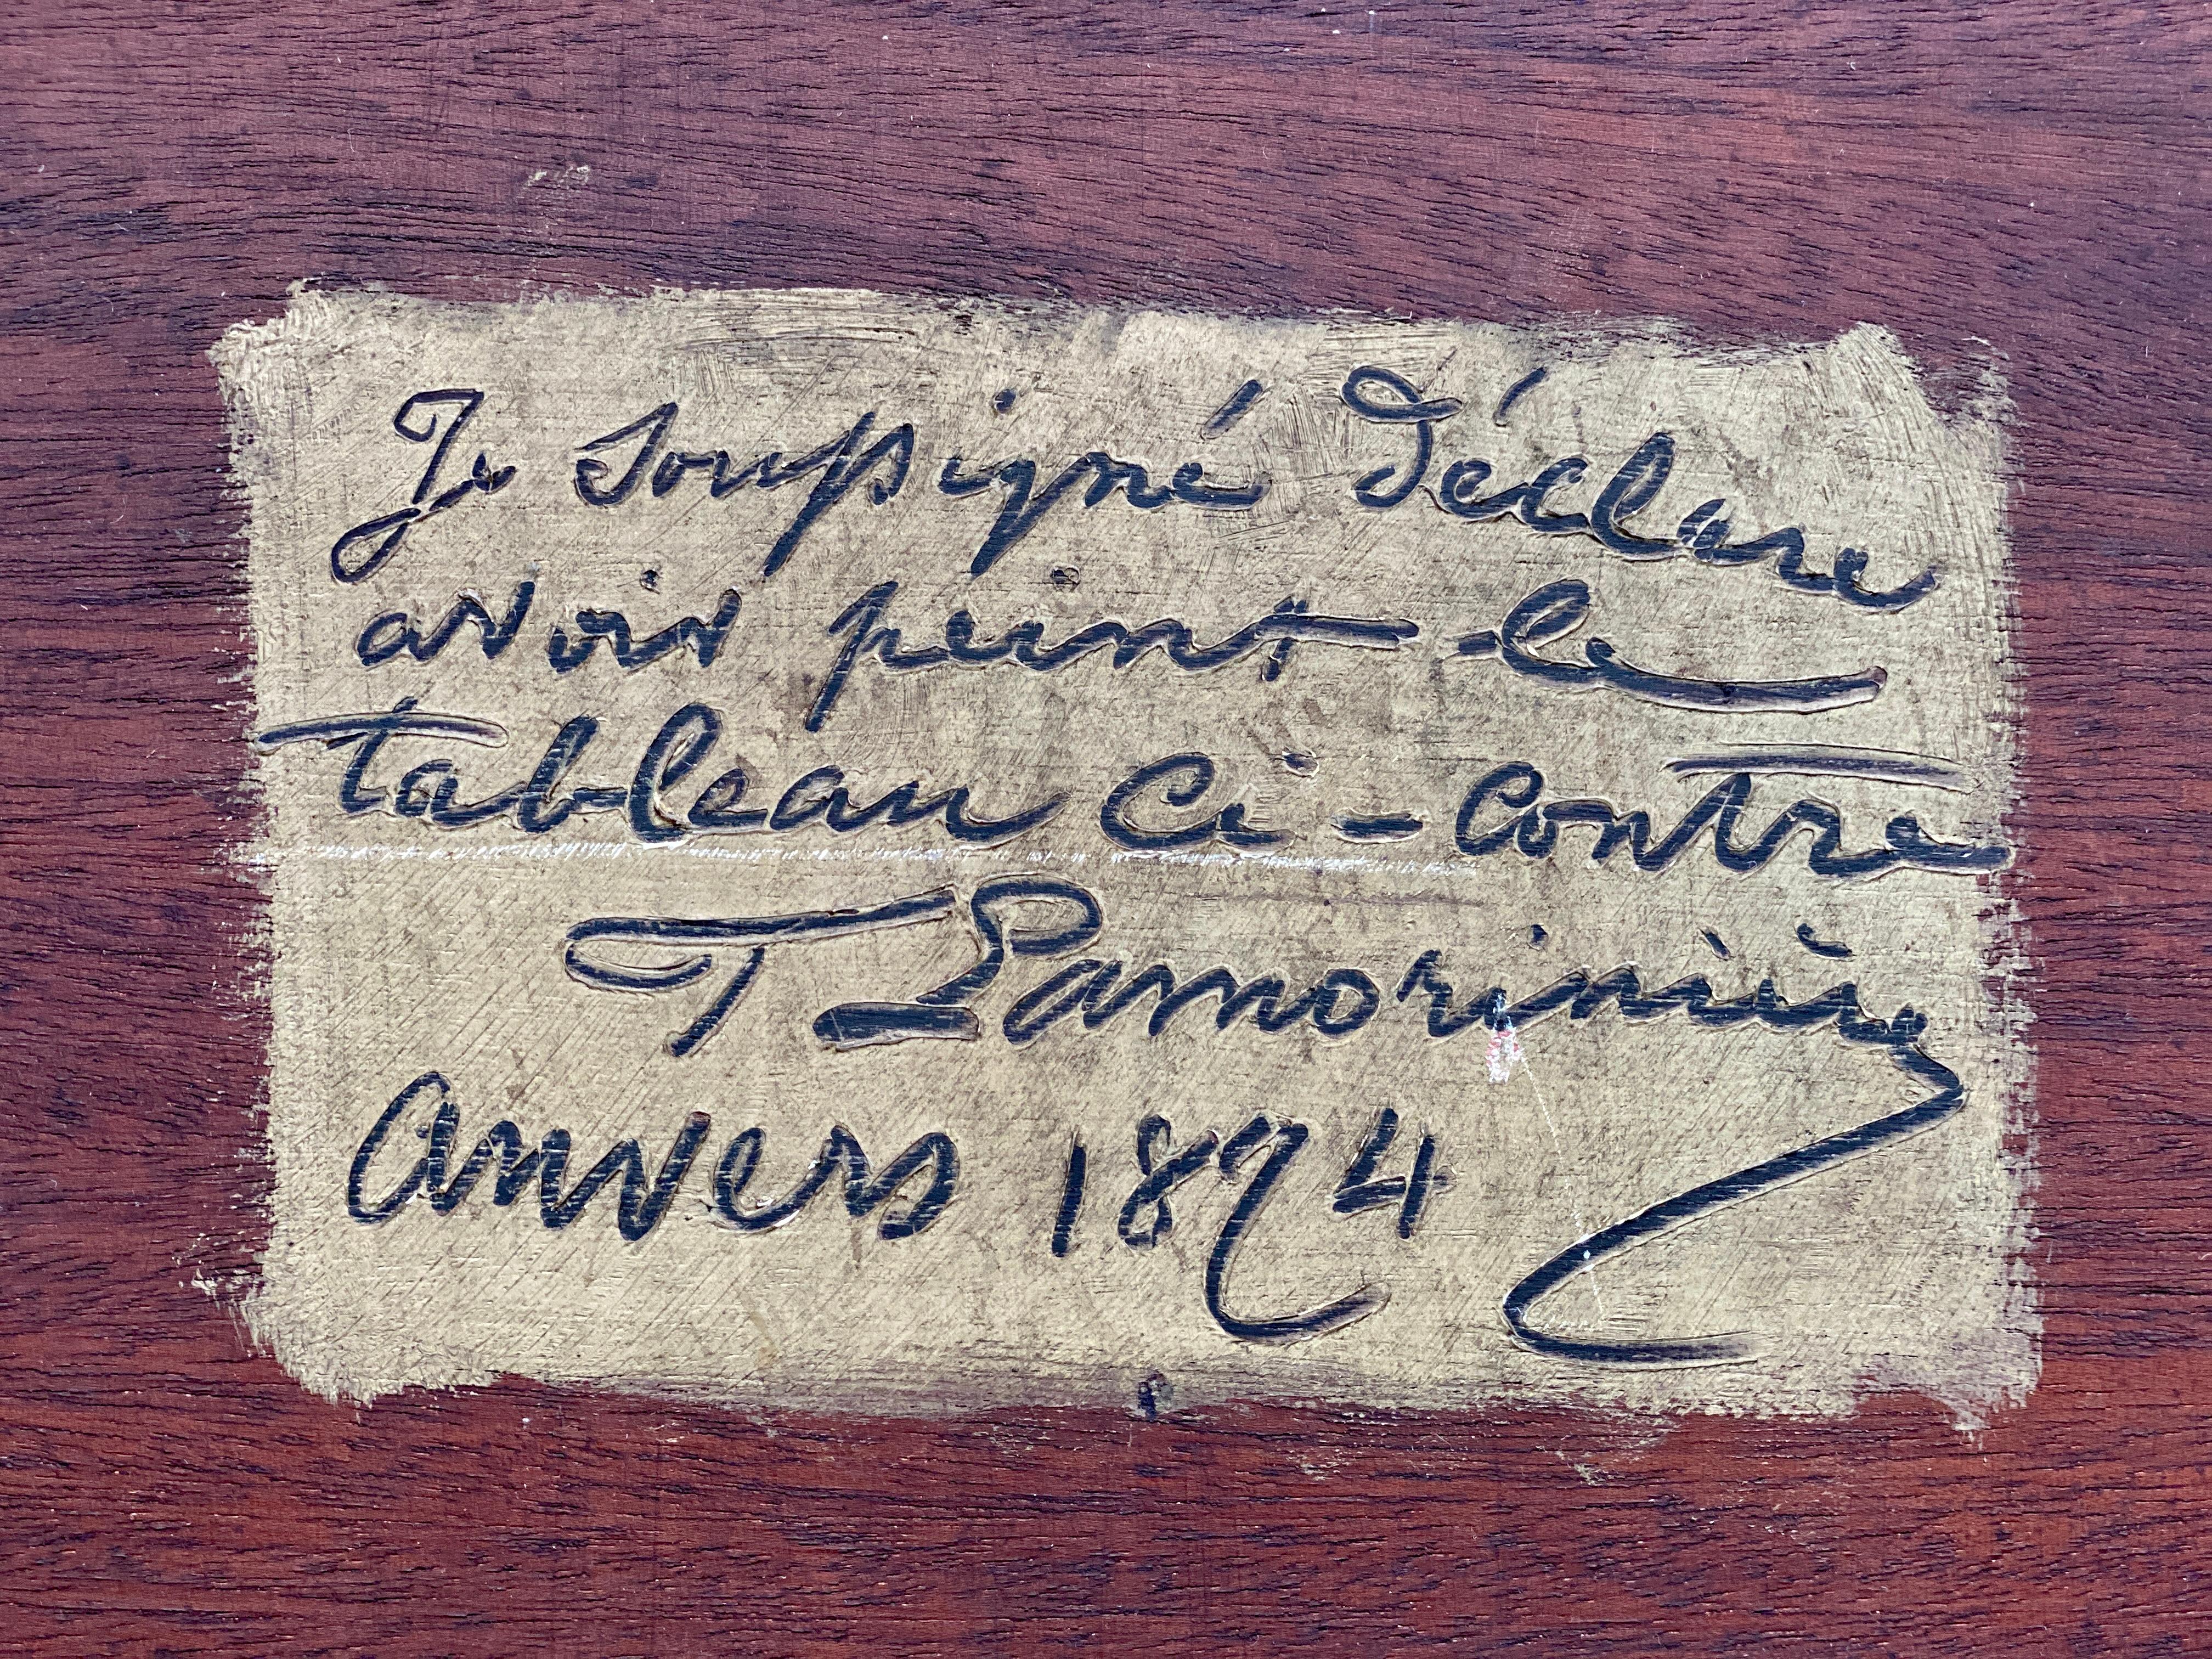 Je soussigné déclare
avoir peint le
tableau ci-contre
F Lamorinière
Anvers 1874